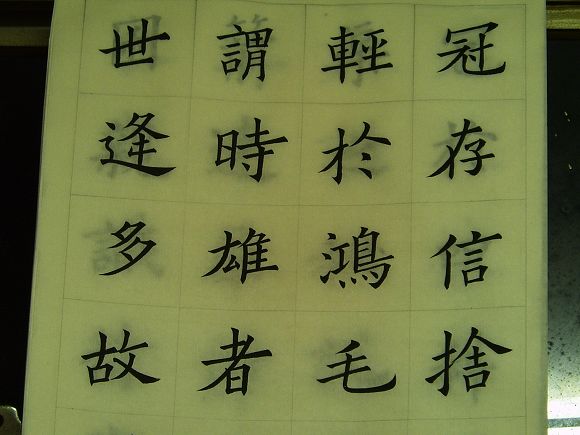 冠存信捨
輕於鴻毛
謂時雄者
世逢多故